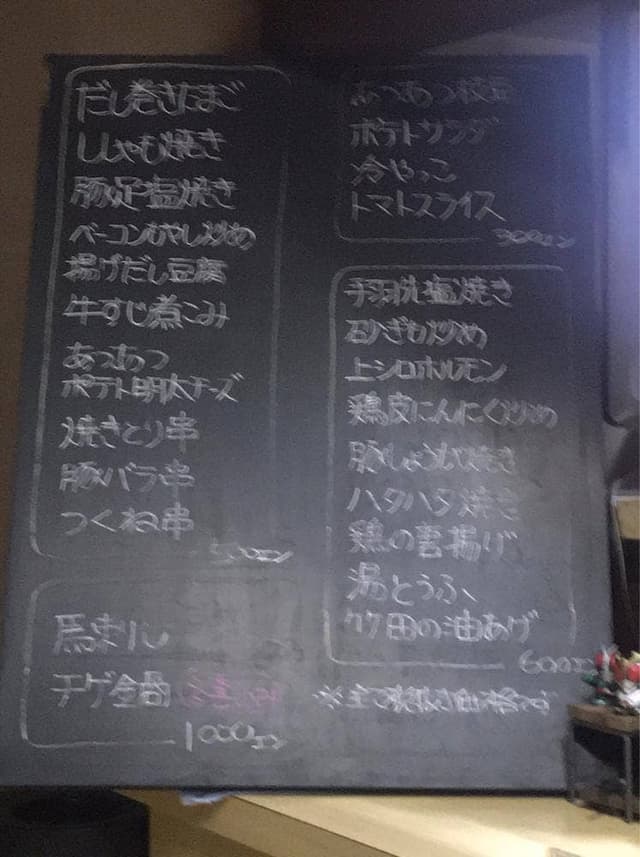 だし巻きたまご
ししゃも焼き
豚足塩焼き
ベーコンもやし炒め
揚げだし豆腐
牛すじ煮こみ
あつあつ
ポテト明太チーズ
焼きとり串
豚バラ串
つくね串
500エン
馬刺し
チゲ全品
1000エン
あつあつ枝豆
ポテトサラダ
冷やっこ
トマトスライス
300エン
手羽先塩焼き
砂ぎも炒め
上シロホルモン
鶏皮にんにく炒め
豚しょうが焼き
ハタハタ焼き
鶏の唐揚げ
湯とうふ
竹田の油あげ
600エン
※全て税抜き価格です